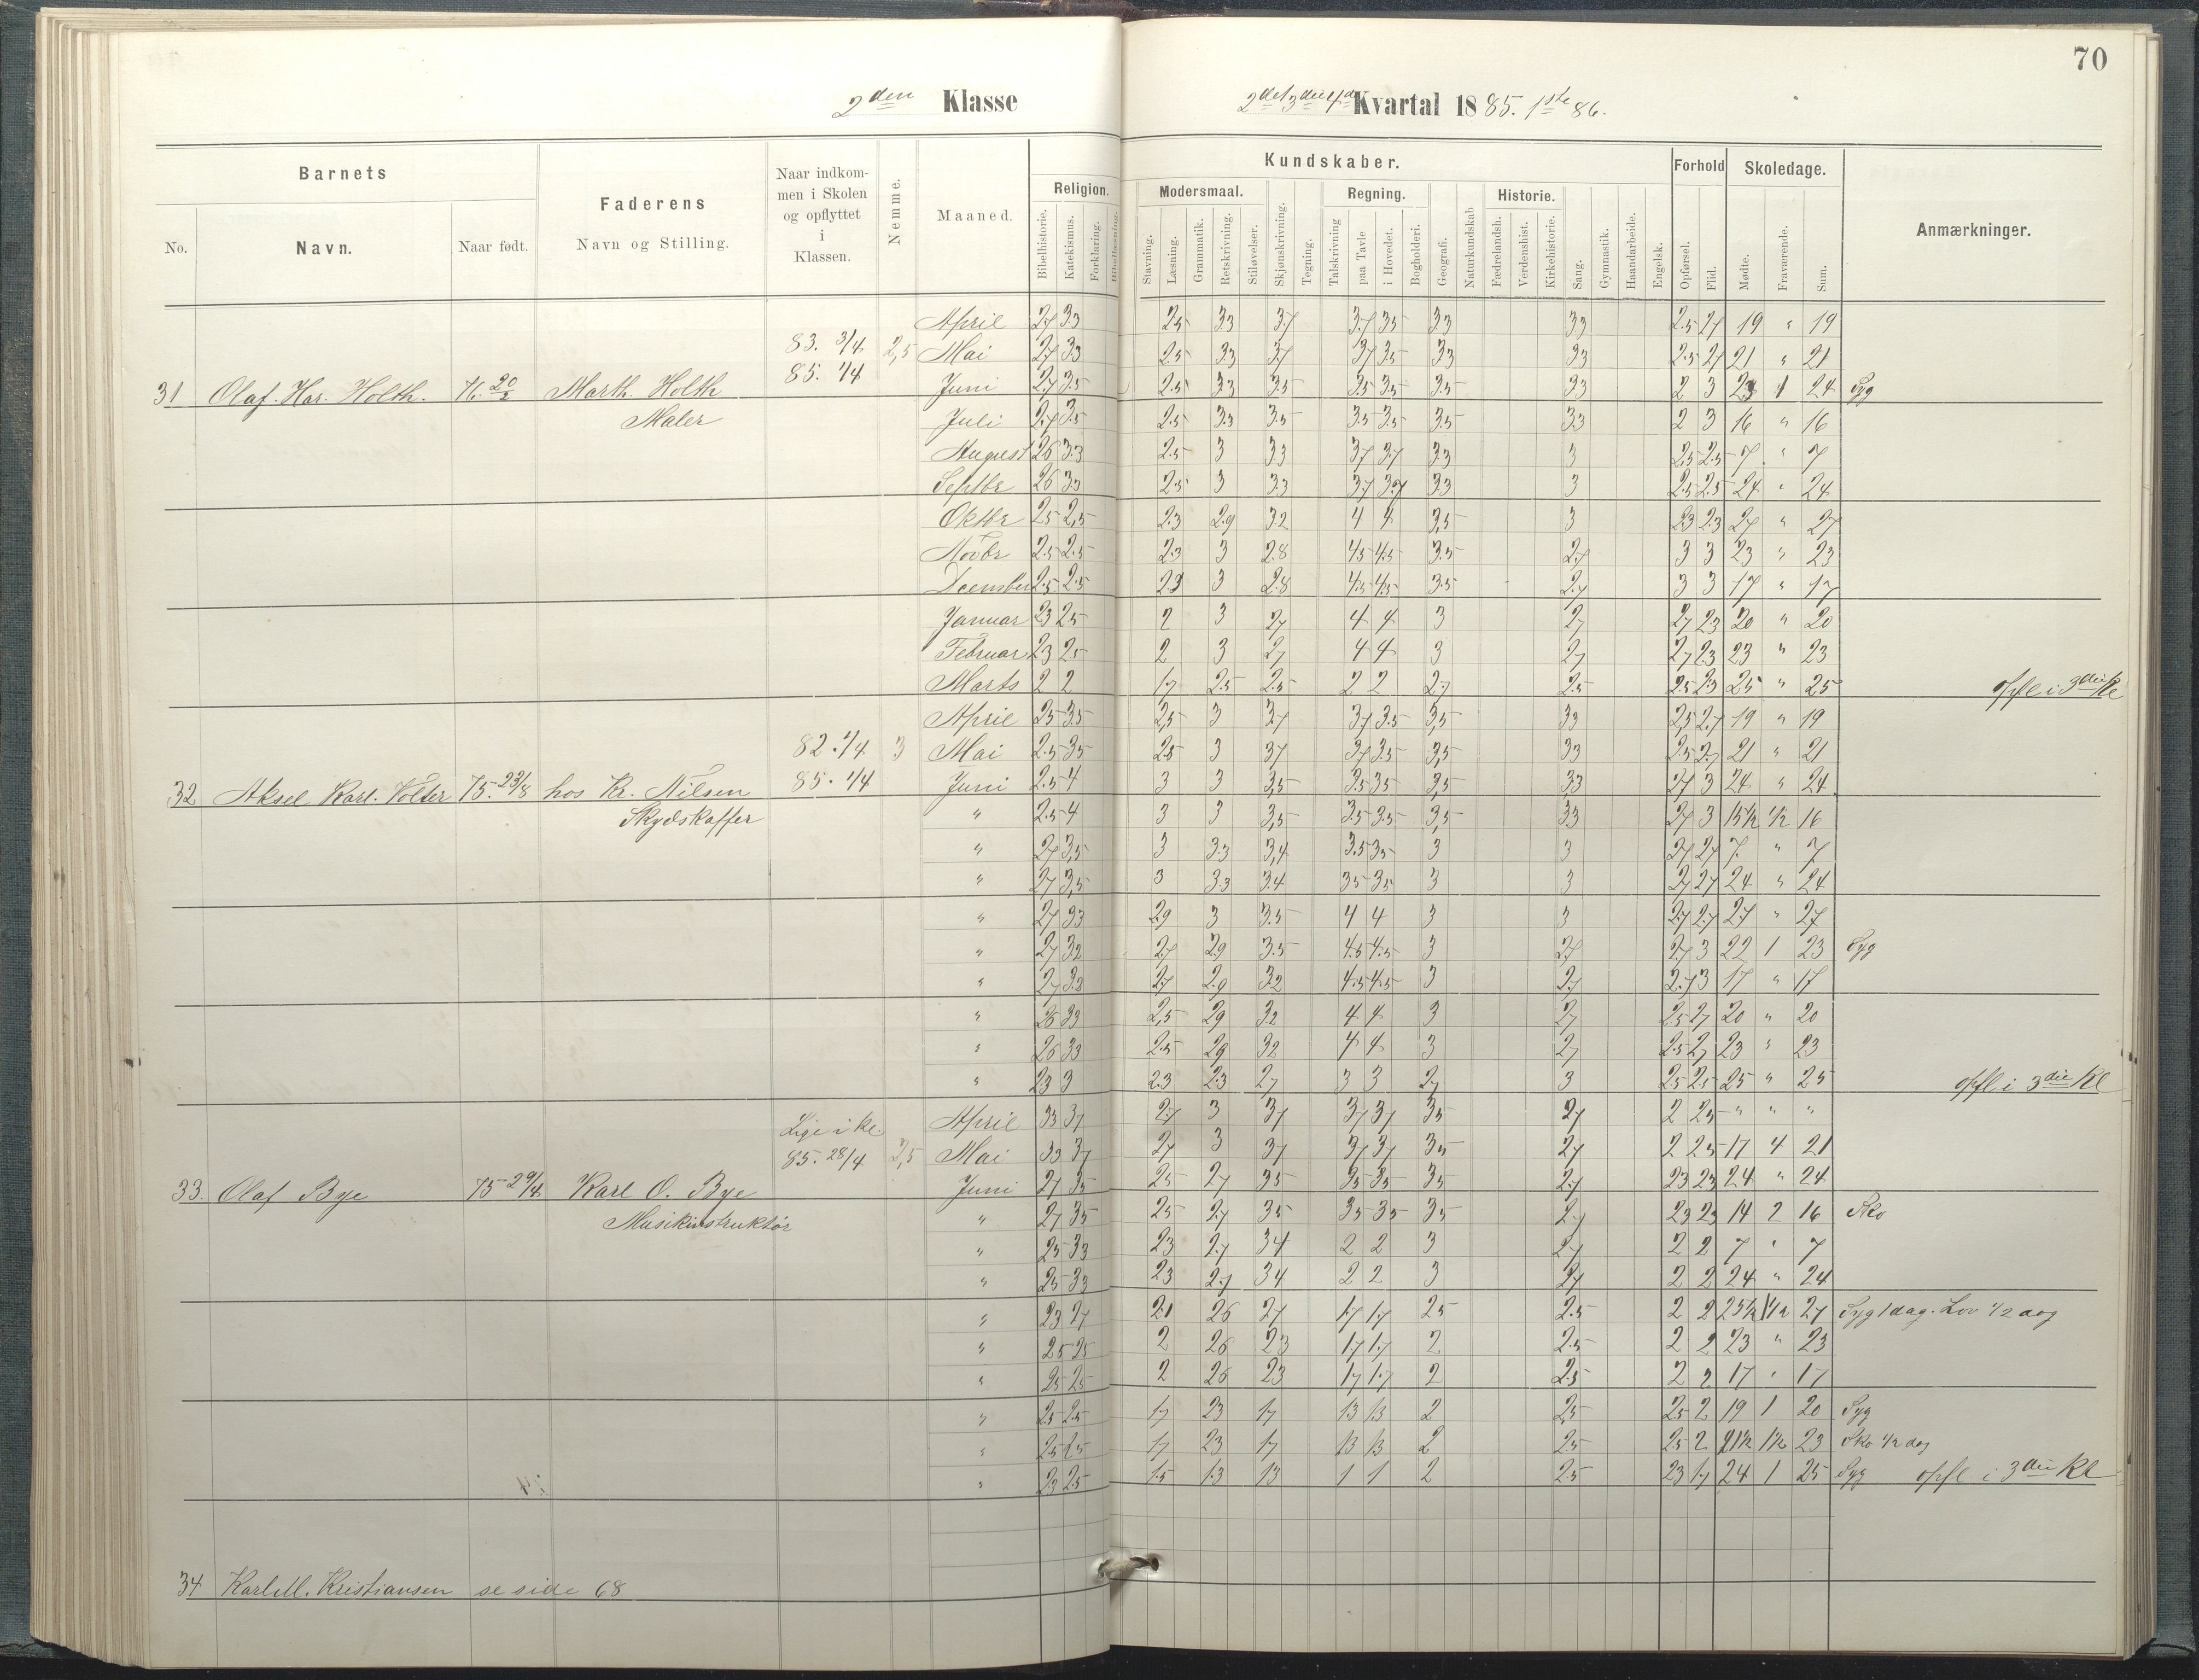 70
2den Klasse
2det 3die 4de Kvartal 1885. 1ste 86.
Barnets
Faderens
Naar indkommen i Skolen og opflyttet i Klassen.
Nemme.
Maaned.
Kundskaber.
Forhold
Skoledage.
Anmærkninger.
No. Navn. Naar født. Navn og Stilling.
Religion. Modersmaal. Regning. Historie.
Bibelhistorie. Katekismus. Forklaring. Bibellæsning. Stavning. Læsning. Grammatik. Retskrivning. Stiløvelser. Skjønskrivning. Tegning. Talskrivning paa Tavle i Hovedet. Bogholderi. Geografi. Naturkundskab Fædrelandsh. Verdenshist. Kirkehistorie. Sang. Gymnastik. Haandarbeide. Engelsk. Opførsel. Flid. Mødte. Fraværende. Sum.
April 2.7 3.3 2.5 3.3 3.7 3.7 3.5 3.3 3.3 2.5 2.7 19 " 19
83. 3/4 2,5 Mai 2.7 3.3 2.5 3.3 3.7 3.7 3.5 3.3 3.3 2.5 2.7 21 " 21
85. 1/4
31 Olaf. Har. Holth. 76. 20/2 Marth. Holth Juni 2.7 3.5 2.5 3.3 3.5 3.5 3.5 3.5 3.3 2 3 23 1 24 Syg
Maler Juli 2.7 3.5 2.5 3.3 3.5 3.5 3.5 3.5 3.3 2 3 16 " 16
August 2.6 3.3 2.5 3 3.3 3.7 3.7 3.3 3 2.5 2.5 7 " 7
Septbr 2.6 3.3 2.5 3 3.3 3.7 3.7 3.3 3 2.5 2.5 24 " 24
Oktbr 2.5 2,5 2.3 2.9 3.2 4 4 3,5 3 2.3 2.3 27 " 27
Novbr 2.5 2.5 2.3 3 2.8 4.5 4.5 3.5 2.7 3 3 23 " 23
December 2.5 2.5 2.3 3 2.8 4.5 4.5 3.5 2.7 3 3 17 " 17
Januar 2.3 2.5 2 3 2.7 4 4 3 2.7 2.7 2.3 20 " 20
Februar 2.3 2.5 2 3 2.7 4 4 3 2.7 2.7 2.3 23 " 23
Marts 2 2 1.7 2.5 2.5 2 2 2.7 2.5 2.5 2.3 25 " 25 opfl i 3die Kl
April 2.5 3.5 2,5 3 3.7 3.7 3.5 3,5 3.3 2,5 2.7 19 " 19
82. 1/4 3 Mai 2.5 3.5 2.5 3 3.7 3.7 3.5 3,5 3.3 2.5 2.7 21 " 21
32 Aksel Karl. Volter 75. 23/8 hos Kr. Nilsen 85. 1/4 Juni 2.5 4 3 3 3,5 3.5 3.5 3,5 3,3 2.7 3 24 " 24
Skydskaffer " 2.5 4 3 3 3,5 3.5 3.5 3,5 3.3 2.7 3 15 1/2 1/2 16
" 2.7 3,5 3 3.3 3,4 3.5 3.5 3 3 2.7 2.7 7. " 7
" 2.7 3,5 3 3.3 3.4 3.5 3.5 3 3 2.7 2.7 24 " 24
" 2.7 3.3 2.9 3 3.5 4 4 3 3 2.7 2.7 27 " 27
" 2.7 3.2 2.7 2.9 3.5 4.5 4.5 3 2.7 2.7 3 22 1 23 Syg
" 2.7 3.2 2.7 2.9 3.2 4.5 4.5 3 2.7 2.7 3 17 " 17
" 2.6 3.3 2,5 2.9 3.2 4 4 3 2.7 2.5 2.7 20 " 20
" 2.6 3.3 2.5 2.9 3.2 4 4 3 2.7 2.5 2.7 23 " 23
" 2.3 3 2.3 2.3 2.7 3 3 2.7 3 2.5 2.5 25 " 25 opfl i 3die Kl
Lige i kl. April 3.3 3.7 2.7 3 3.7 3.7 3.7 3.5 2.7 2 2.5 " " "
85. 28/4 2,5 Mai 3.3 3.7 2.7 3 3.7 3.7 3.7 3.5 2.7 2 2.5 17 4 21
33. Olaf Bye 75 29/4 Karl O. Bye Juni 2.7 3.5 2.5 2.7 3.5 3.5 3.5 3.5 2.7 2.3 2.3 24 " 24
Musikinstruktør " 2.7 3.5 2.5 2.7 3.5 3.5 3.5 3.5 2.7 2.3 2.3 14 2 16 Sko
" 2.5 3.3 2.3 2.7 3.4 2 2 3 2.7 2 2 7 " 7
" 2.5 3.3 2.3 2.7 3.4 2 2 3 2.7 2 2 24 " 24
" 2.3 2.7 2.1 2.6 2.7 1.7 1.7 2.5 2.5 2 2 25 1/2 1 1/2 27 Syg 1 dag. Lov 1/2 dag
" 2.5 2.5 2 2.6 2.3 1.7 1.7 2 2.5 2 2 23 " 23
" 2.5 2.5 2 2.6 2.3 1.7 1.7 2 2.5 2 2 17 " 17
" 2.5 2.5 1.7 2.3 1.7 1.3 1.3 2 2.5 2.5 2 19 1 20 Syg
" 2.5 2.5 1.7 2.3 1.7 1.3 1.3 2 2.5 2.5 2 21 1/2 1 1/2 23 Sko 1/2 dag
" 2.3 2.5 1.5 1.3 1.3 1 1 2 2.5 2.3 1.7 24 1 25 Syg opfl i 3die Kl
34 Karl M. Kristiansen se side 68